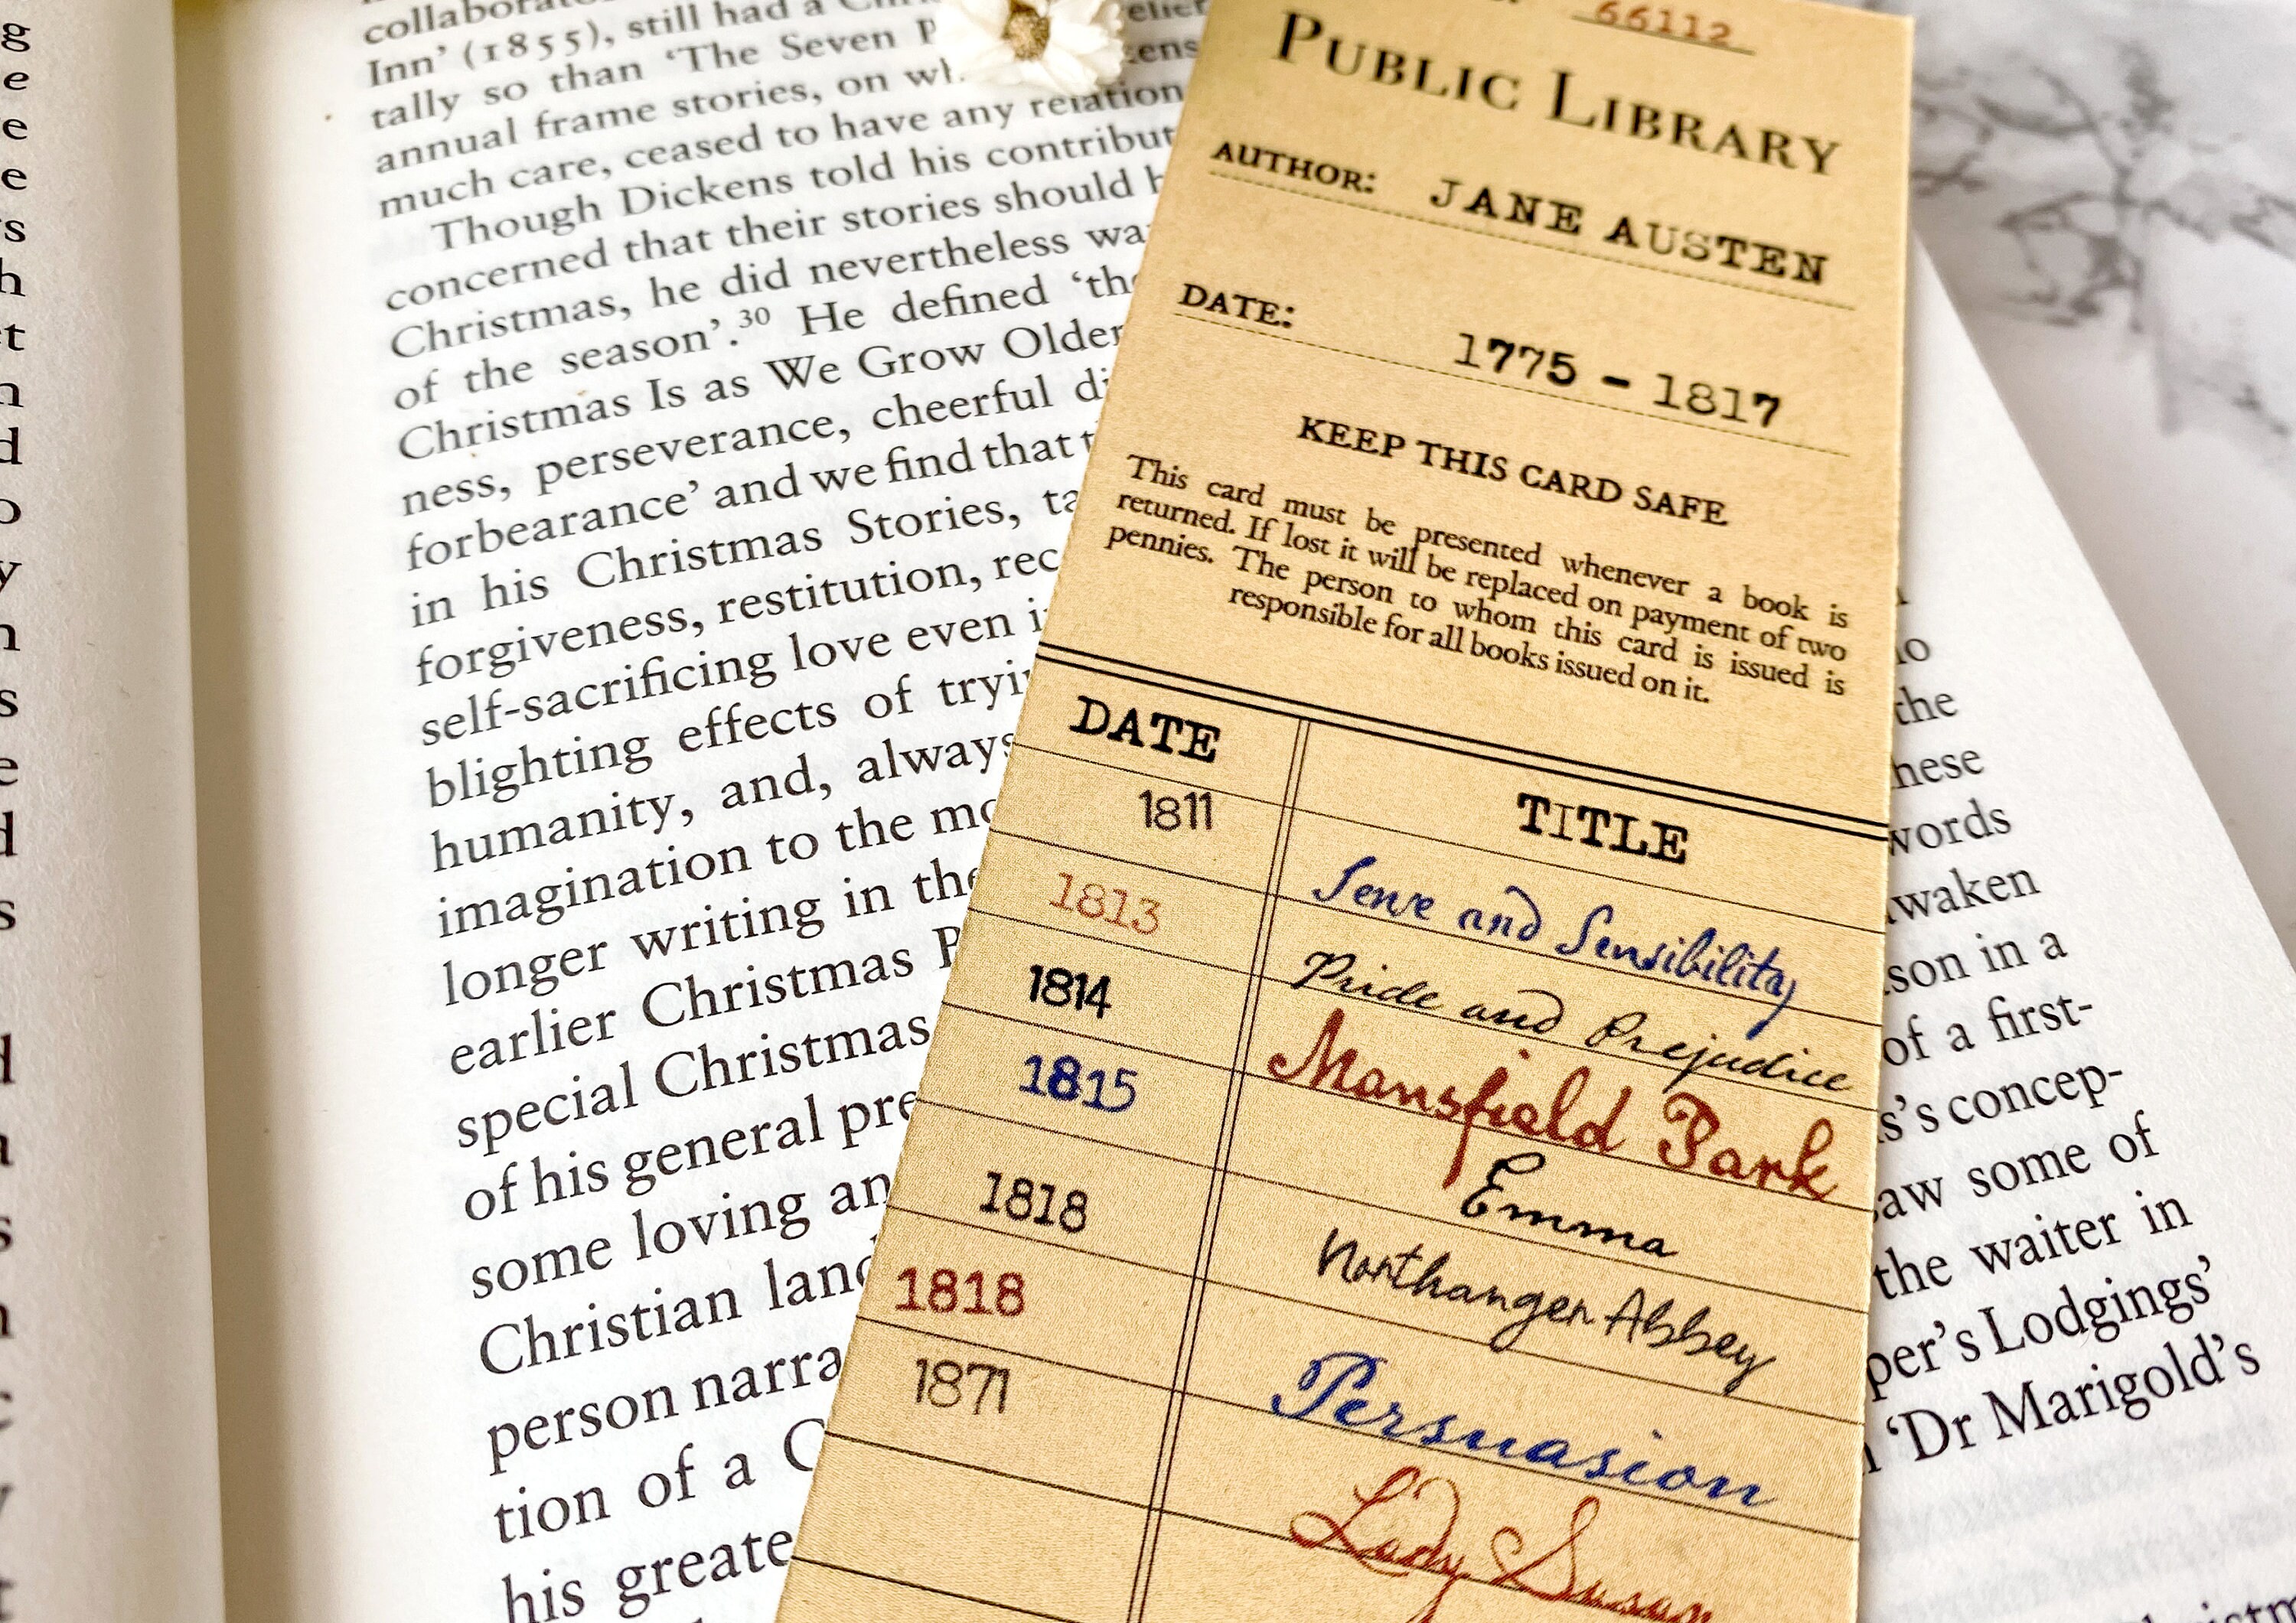 g
e
e
e
s
h
t
n
d
o
y
n
s
e
d
s
d
a
s
n
c
y
t
Inn' (1855), still had a
tally so than 'The Seven P
annual frame stories, on wh
much care, ceased to have any relation
Though Dickens told his contribut
concerned that their stories should b
Christmas, he did nevertheless wa
of the season'.30 He defined 'the
Christmas Is as We Grow Older
ness, perseverance, cheerful di
forbearance' and we find that t
in his Christmas Stories, ta
forgiveness, restitution, rec
self-sacrificing love even i
blighting effects of tryi
humanity, and, always
imagination to the mo
longer writing in the
earlier Christmas P
special Christmas
of his general pre
some loving an
Christian land
person narra
tion of a C
his greate
66112
PUBLIC LIBRARY
AUTHOR: JANE AUSTEN
DATE: 1775 - 1817
KEEP THIS CARD SAFE
This card must be presented whenever a book is
returned. If lost it will be replaced on payment of two
pennies. The person to whom this card is issued is
responsible for all books issued on it.
DATE TITLE
1811 Sense and Sensibility
1813 Pride and Prejudice
1814 Mansfield Park
1815 Emma
1818 Northanger Abbey
1818 Persuasion
1871 Lady Susan
the
hese
words
awaken
son in a
of a first-
s's concep-
saw some of
the waiter in
per's Lodgings'
'Dr Marigold's